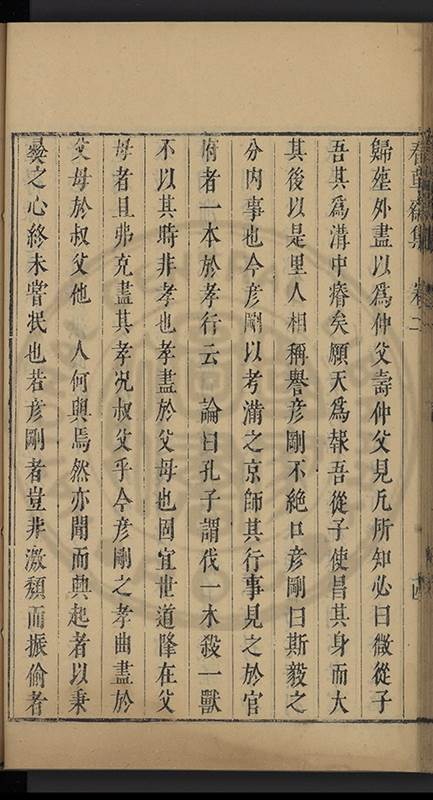 歸塋外盡以為仲父壽仲父見凡所知必曰微從子
吾其為溝中瘠矣願天為報吾從子使昌其身而大
其後以是里人相稱譽彥剛不絕口彥剛曰斯毅之
分內事也今彥剛以考滿之京師其行事見之於官
府者一本於孝行云　論曰孔子謂伐一木殺一獸
不以其時非孝也孝盡於父母也固宜世道降在父
母者且弗克盡其孝况叔父乎今彥剛之孝曲盡於
父母於叔父他　人何與焉然亦聞而興起者以秉
彝之心終未嘗泯也若彥剛者豈非激頹而振偷者